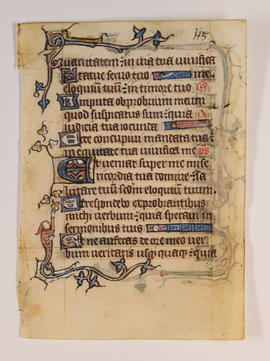 115
vanitatem: in via tua vivifica
Statue servo tuo me.
eloquium tuum: in timore tuo
Amputa obprobrium meum
quod suspicatus sum: quia
iudicia tua iocunda
Ecce concupivi mandata tua:
in equitate tua vivifica me. ps
Et veniat super me mise
ricordia tua domine: sa
lutare tuum sedm eloquium tuum.
Et respondebo exprobrantibus
michi verbum: quia speravi in
sermonibus tuis
Et ne auferas de ore meo ver
bum veritatis usqꝫ quaqꝫ: quia